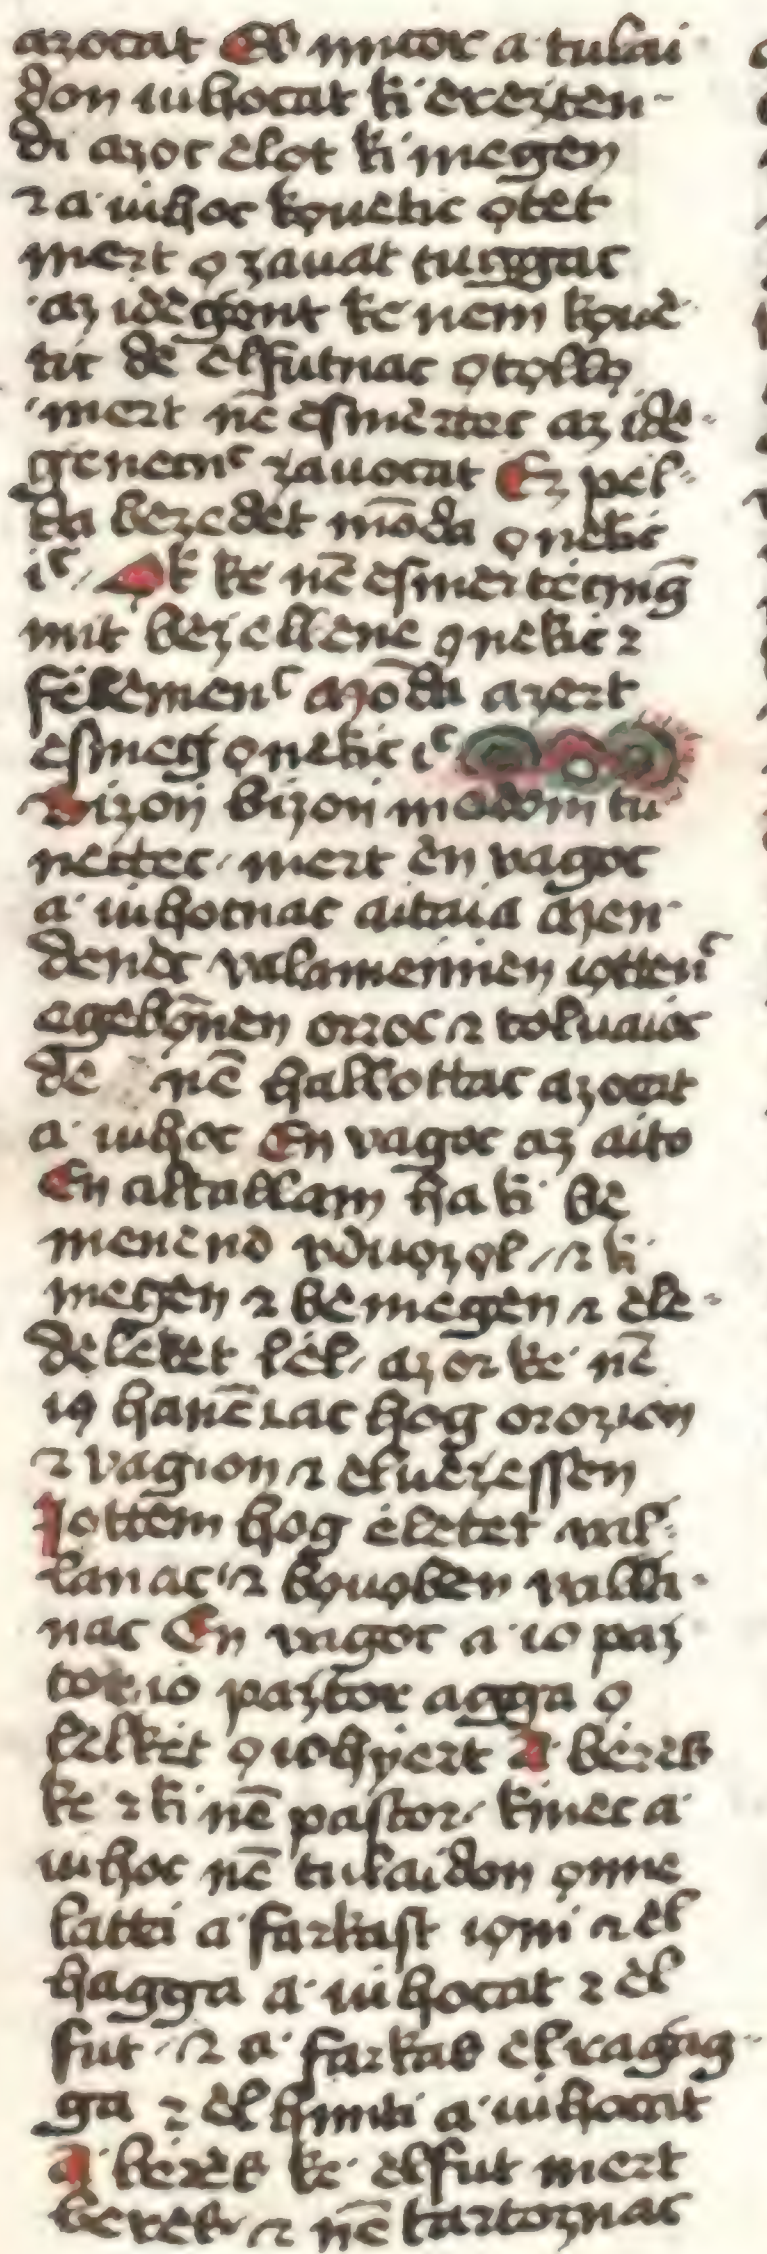 azocat Es micor a· tulai
don iuhocat ki· erezten-
di azoc èlọt ki· megen
ꝛ a· iuhoc kọuètic ọtèt
mert ọ zauat tuggac
az idègent ke nem kọuè-
tic de èlfutnac ọtọllọ
mert nē eſmèrtec az ide-
genecnc zauocat Ez pel-
da bezedet mōda ọnèkic
ic Az ke nē eſmertecmḡ
mit bezellene ọnekic ꝛ
felèmenc azōda azert
eſmeg ọnekic ic
Bizon bizon mōdom tu
nèctec mert èn vagoc
a· iuhocnac aitaia azen-
denèc valamenneien iọttenc
egebọ̄nen orroc ꝛ toluaioc
de nē hallottac azocat
a· iuhoc En vagoc az aito
En altallam ha ki· be
menend vduọzọl ꝛ ki·
megen ꝛ be megen ꝛ èle-
deleket lèl az or ke nē
iọ̄ hanē cac hog orozion
ꝛ vagion ꝛ eluèzeſſen
Iottem hog eletet val-
lanac ꝛ bọuọben valla-
nac En vagoc a· io paz
tor io paztor agga ọ
lelket ọ iohyert A· beres
ke ꝛ ki nē paſtor kinec a·
iuhoc nē tulaidon ọnne
latta a· farkaſt iọni ꝛ èl
hagga a· iuhocat ꝛ èl
fut ꝛ a· farkas elragag-
ga ꝛ èl hinti a· iuhocat
A· berès ke èlfut mert
beres ꝛ nē tartoznac